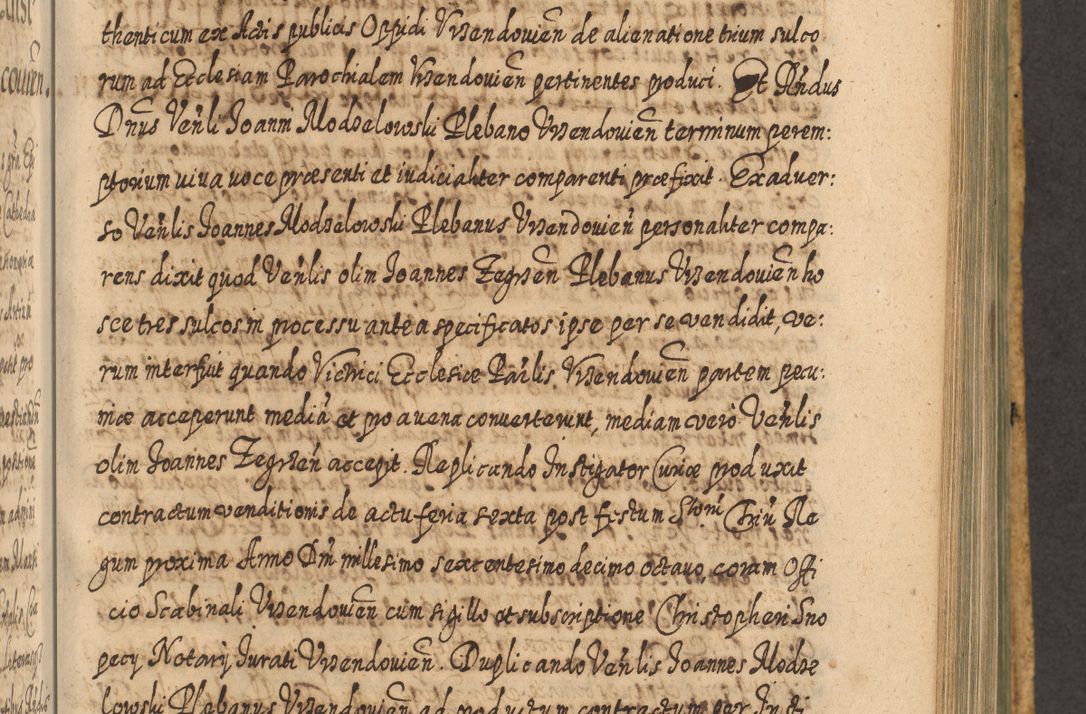 thenticum ex Actis publicis Oppidi Vrzendouień de alienatione trium sulco
rum ad Ecclesiam Parochialem Vrzendouień pertinentes produci. Et Rńdus
Dńus Veńli Joanni Modzelowski Plebano Vrzendouień terminum perem:
ptorium uiua uoce præsenti et iudicialiter comparenti præfixit. Exaduer:
so Veńlis Joannes Modzelowski Plebanus Vrzendouień personaliter compa:
rens dixit quod Veńlis olim Joannes Zegrzen Plebanus Vrzendouień ho
sce tres sulcos in processu antea specificatos ipse per se vendidit, ve:
rum interfuit quando Victrici Ecclesiæ Paŕlis Vrzendouień partem pecu:
niæ acceperunt mediā et pro auena conuerterunt, mediam vero Veńlis
olim Joannes Zegrzeń accepit. Replicando Instigator Curiæ produxit
contractum venditionis de actu feria sexta post festum Sńoru Triū Re
gum proxima Anno Dńi millesimo sexcentesimo decimo octauo coram Offi
cio Scabinali Vrzendouień cum sigillo et subscriptione Christopheri Sno
pecy Notarij Jurati Vrzendouień. Duplicando Veńlis Joannes Modze
lowski Plebanus Vrzendouień ad productum contractum per Insti